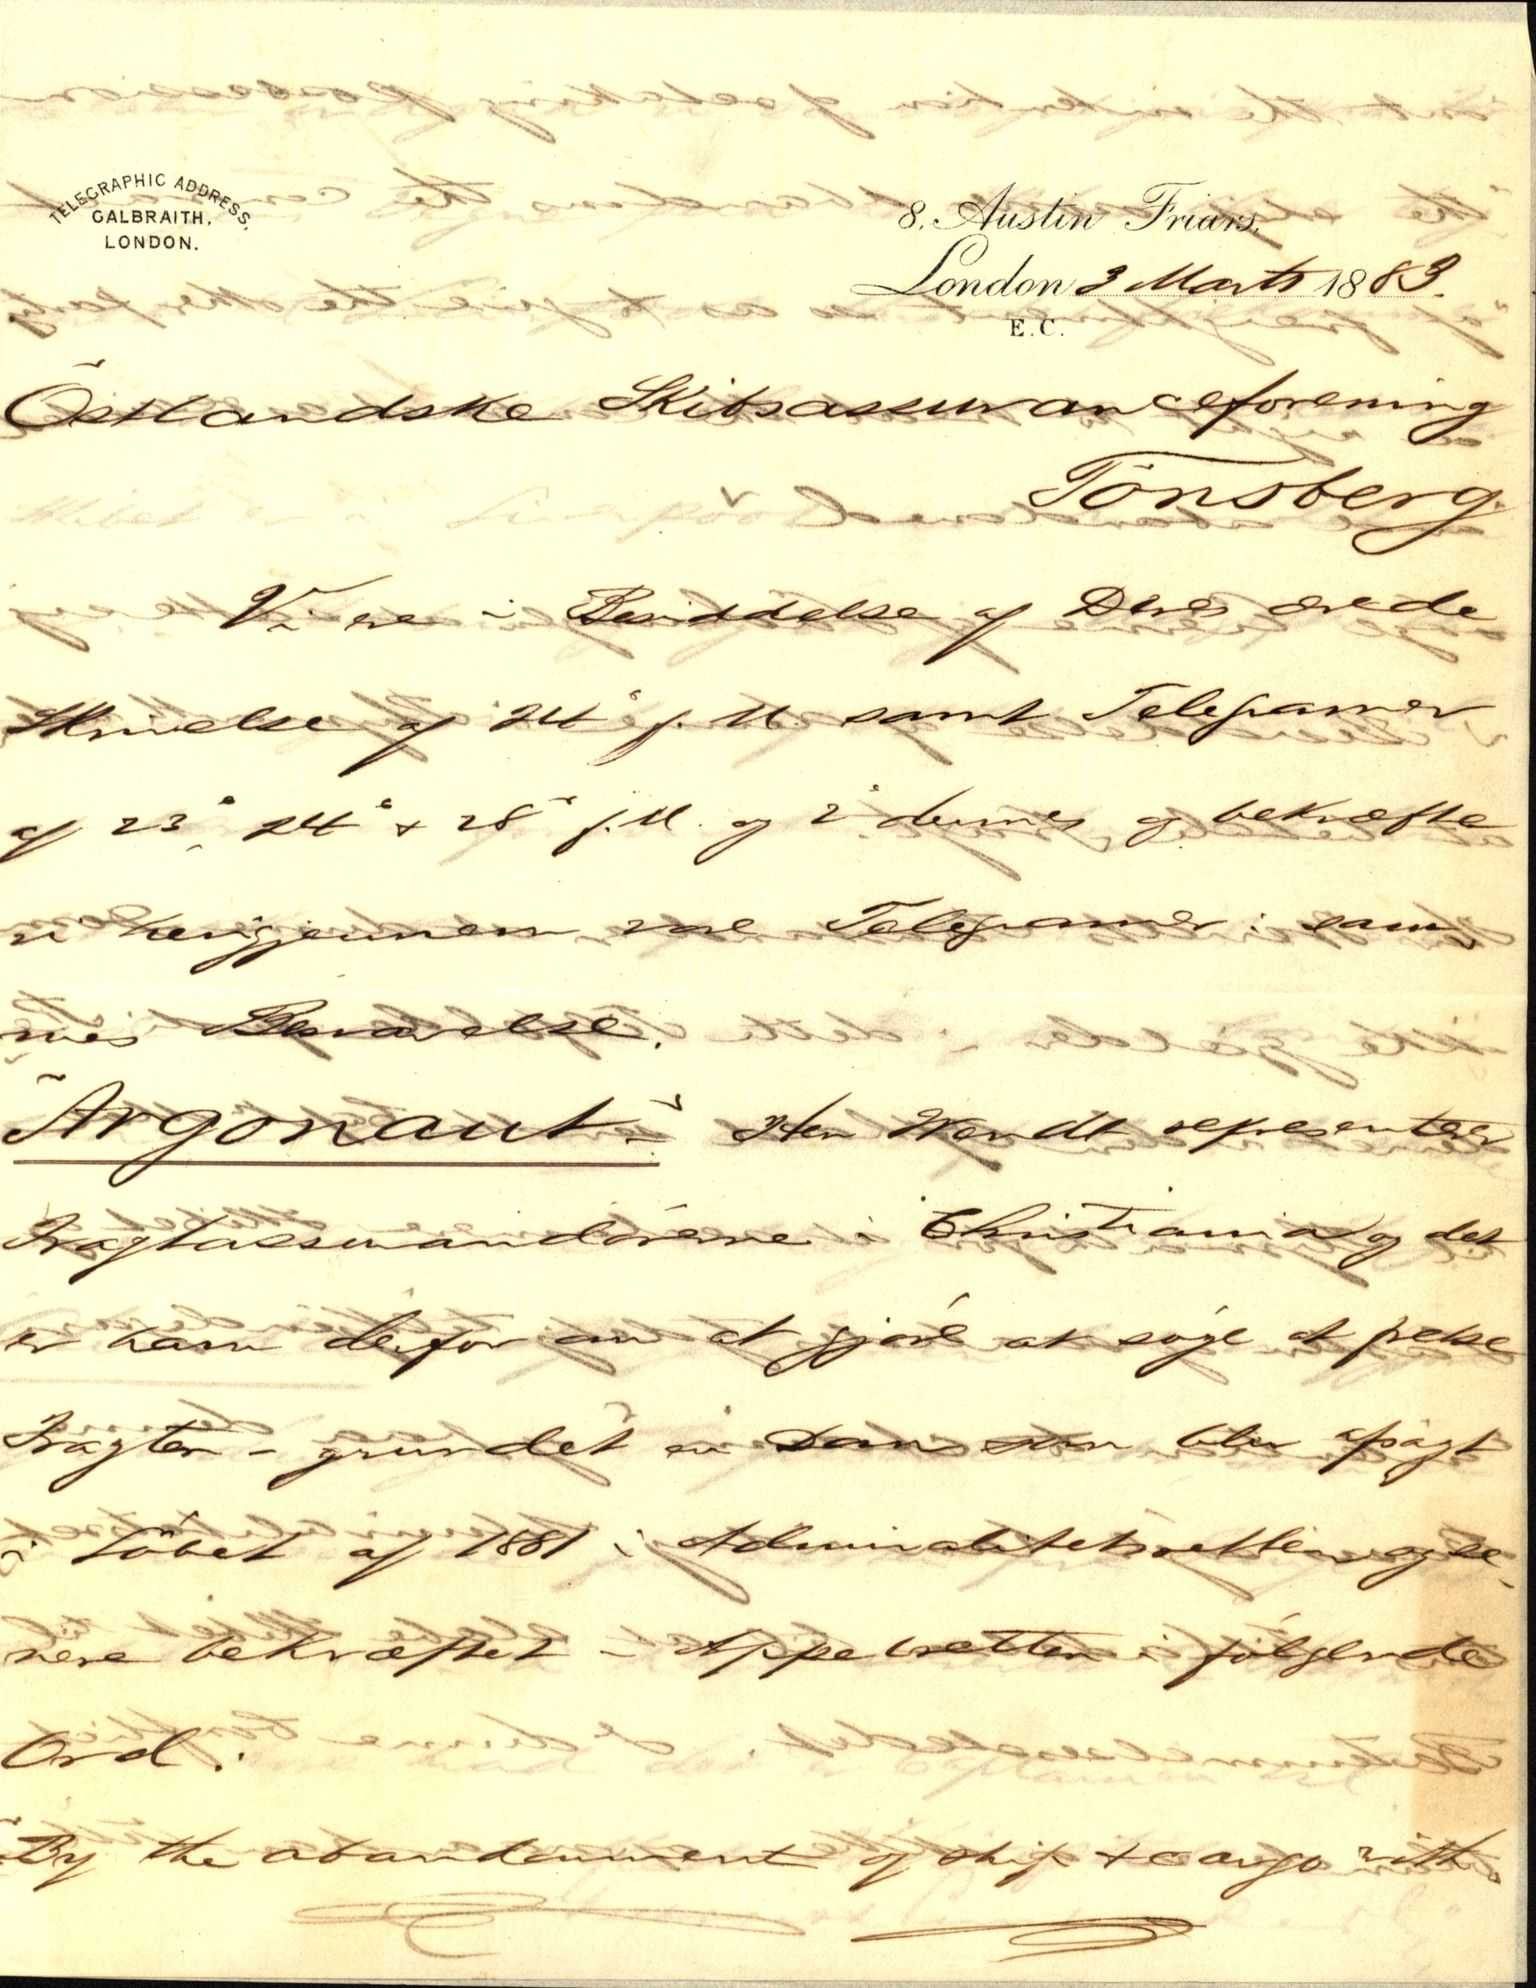 TELEGRAPHIC ADDRESS,
GALBRAITH,
LONDON.
8, Austin Friars,
London 3 Marts 1883.
E.C.
Östlandske Skibsassuranceforening
Tönsberg.
Vi ere i Besiddelse af Deres ærede
Skrivelse af 24' f. M. samt Telegramer
af 23' 24' & 28' f. M. og 2' dennes og bekræfte
vi herigjennem vore Telegramer i sam-
mes Besvarelse.
"Argonaut". Herr Wendt representerer
Fragtassurandörerne i Christiania og det
er ham derfor om at gjøre at søge at frelse
Fragten - grundet en Dom som blev afsagt
i Löbet af 1881 i Admiralitetsretten og se-
nere bekræftet i Appelretten i fölgende
Ord:
"By the abandonment of ship & cargo with-